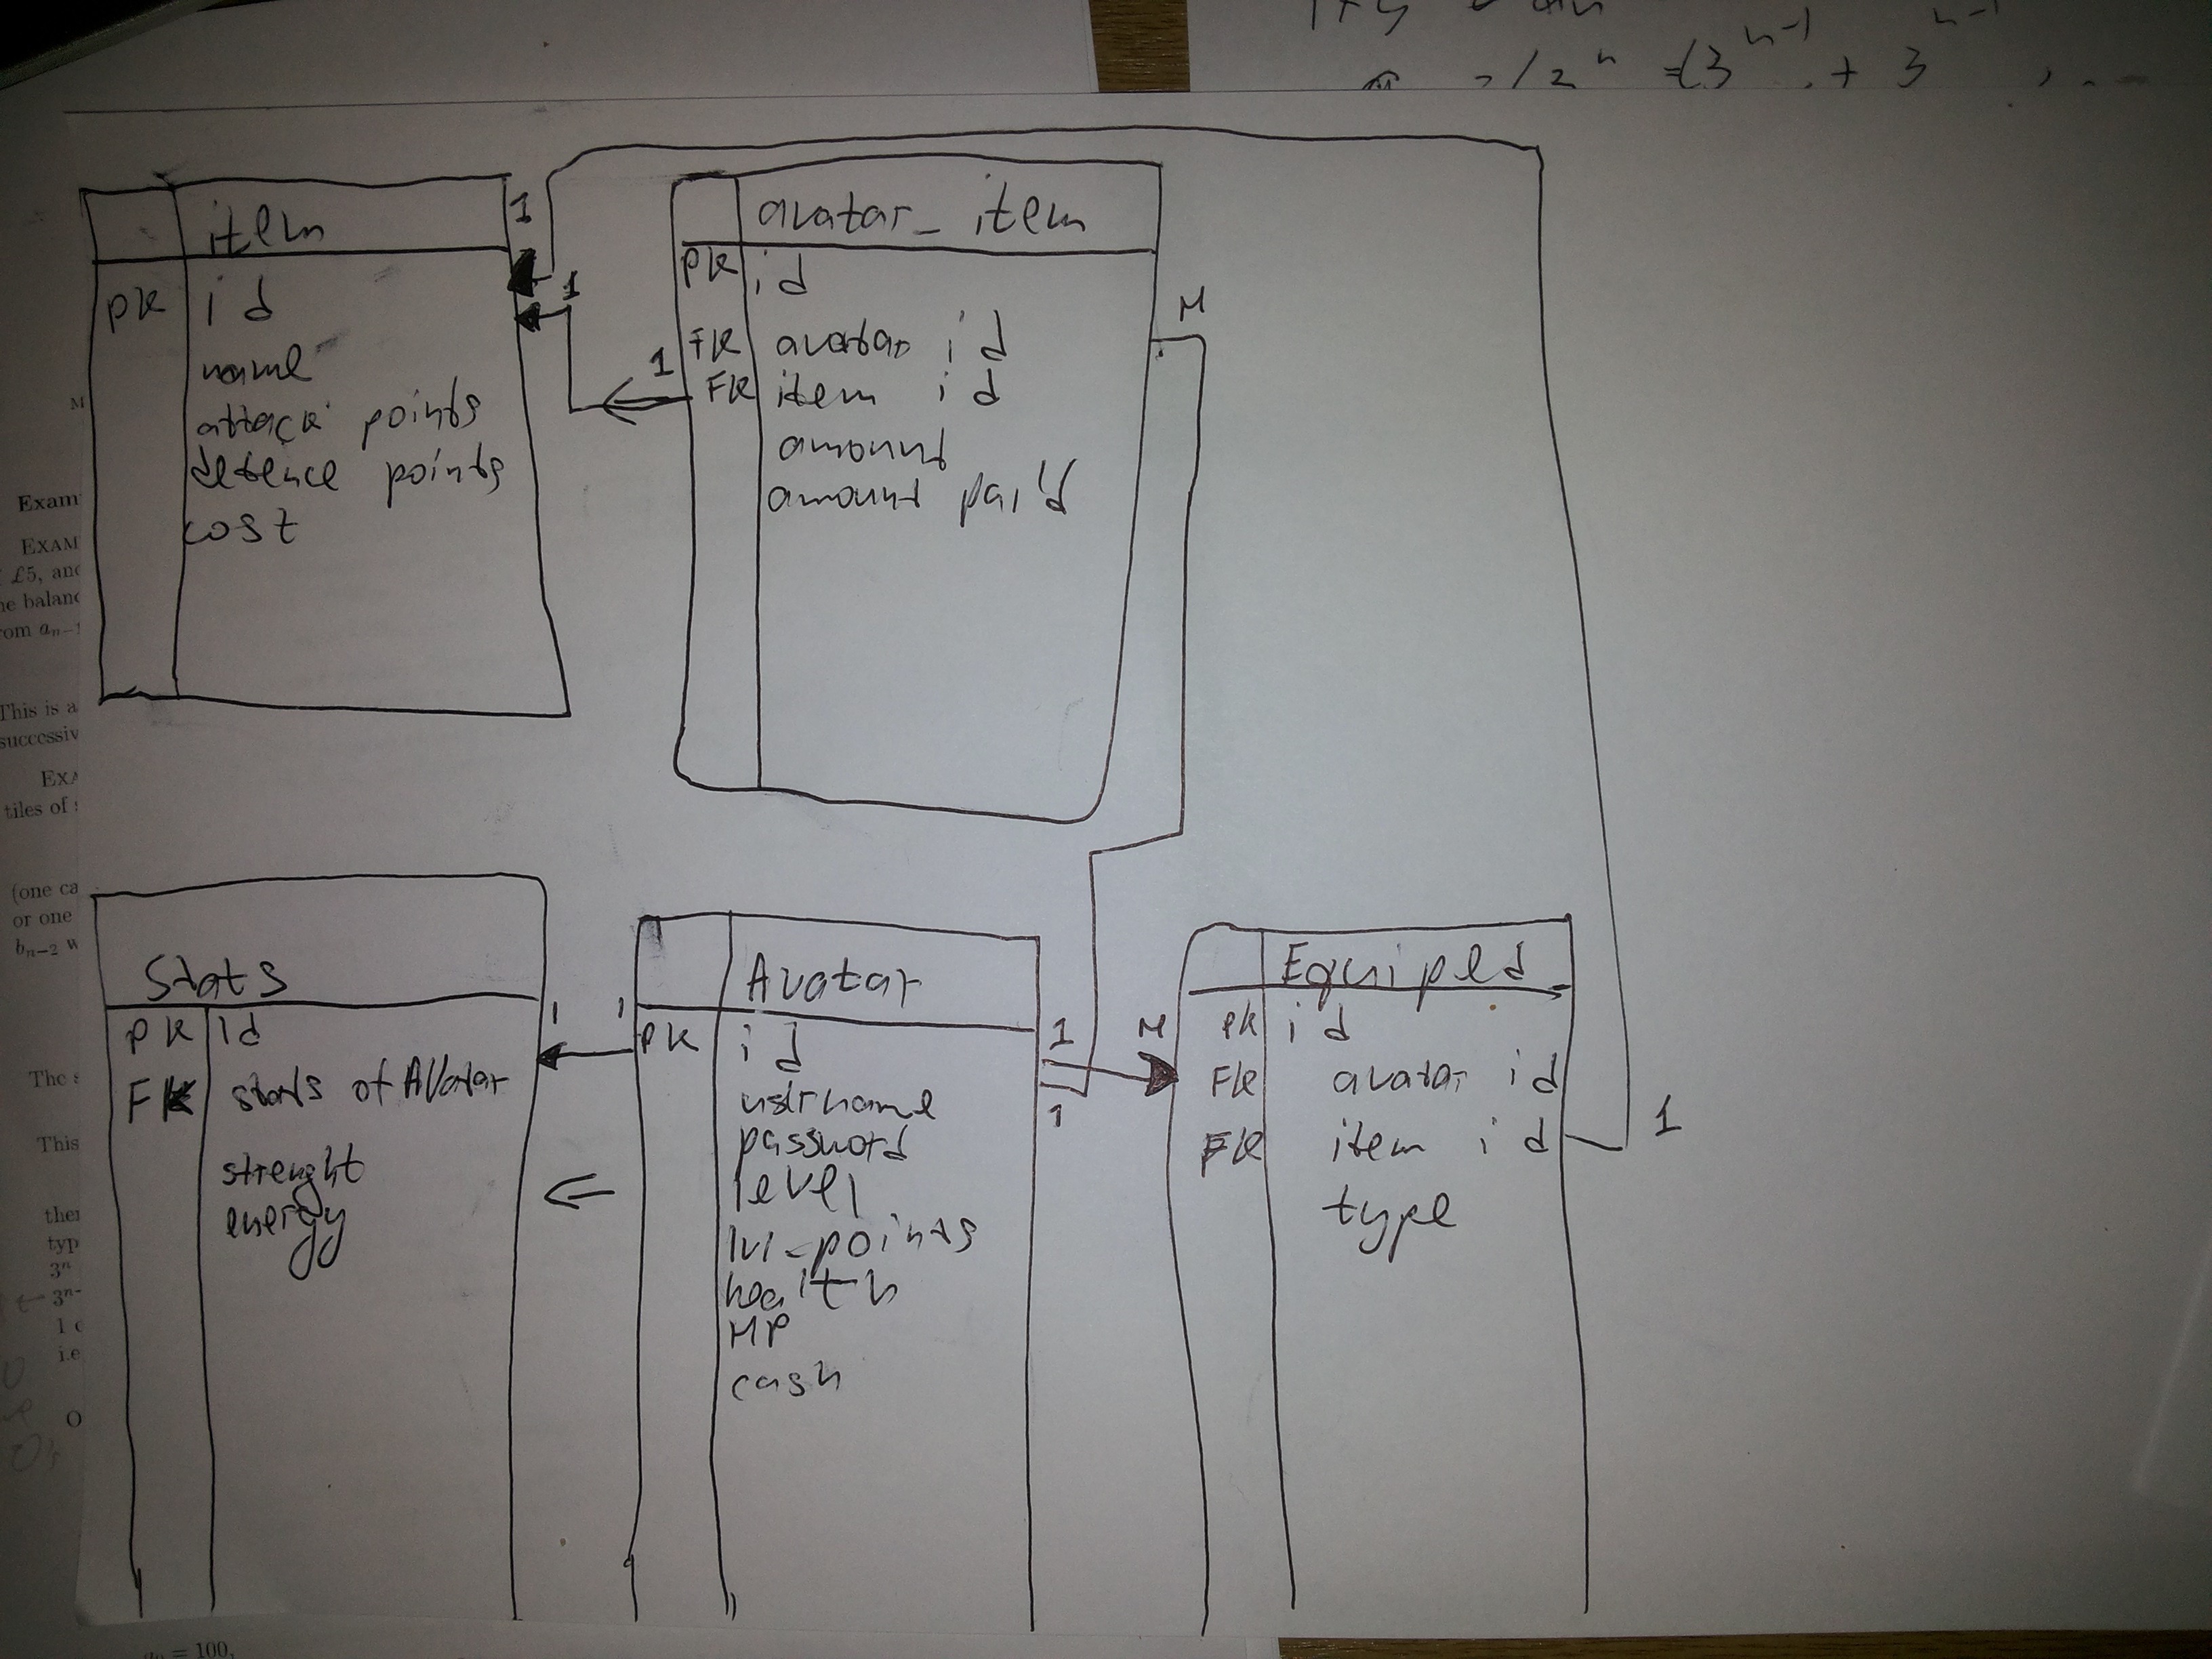 = (3^{n-1} + 3^{n-1}
item
PK id
name
attack points
defence points
cost
1
1
avatar_item
PK id
FK avatar id
FK item id
amount
amount paid
1
M
Stats
PK id
FK stats of Avatar
strenght
energy
1
1
Avatar
PK id
usirname
password
level
lvl_points
healt h
MP
cash
1
1
M
Equiped
PK id
FK avatar id
FK item id
type
1
Exam
EXAM
£5, and
he balanc
rom a_{n-1}
This is a
successiv
EXA
tiles of
(one ca
or one
b_{n-2} w
The s
This
then
typ
3^n
3^{n-}
1 c
i.e
O
= 100,